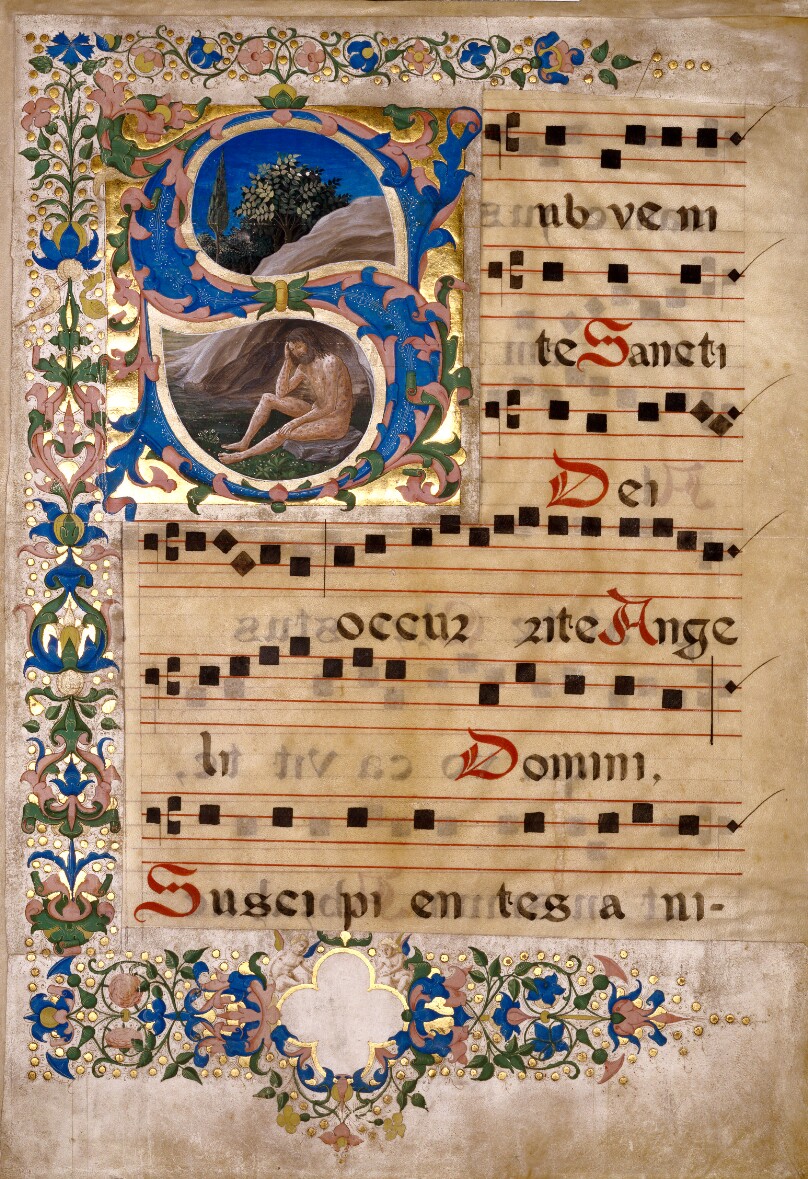 S ub ve ni
te Sancti
Dei
occur rite Ange
li Domini,
Suscipi en tes a ni-